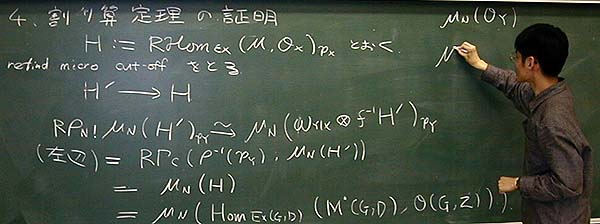 4. 割り算定理の証明
H := RHom_EX (M, O_X)_{p_X} とおく
refind micro cut-off をとる
H' → H
RP_N! μ_N (H')_{p_Y} ≃ μ_N (ω_{Y|X} ⊗ f^{-1} H')_{p_Y}
(左辺) = RΓ_C (P^{-1}(p_Y) ; μ_N(H'))
= μ_N (H)
= μ_N (Hom_{EX(G,D)} (M^•(G,D), O(G,Z))).
μ_N (O_Y)
μ